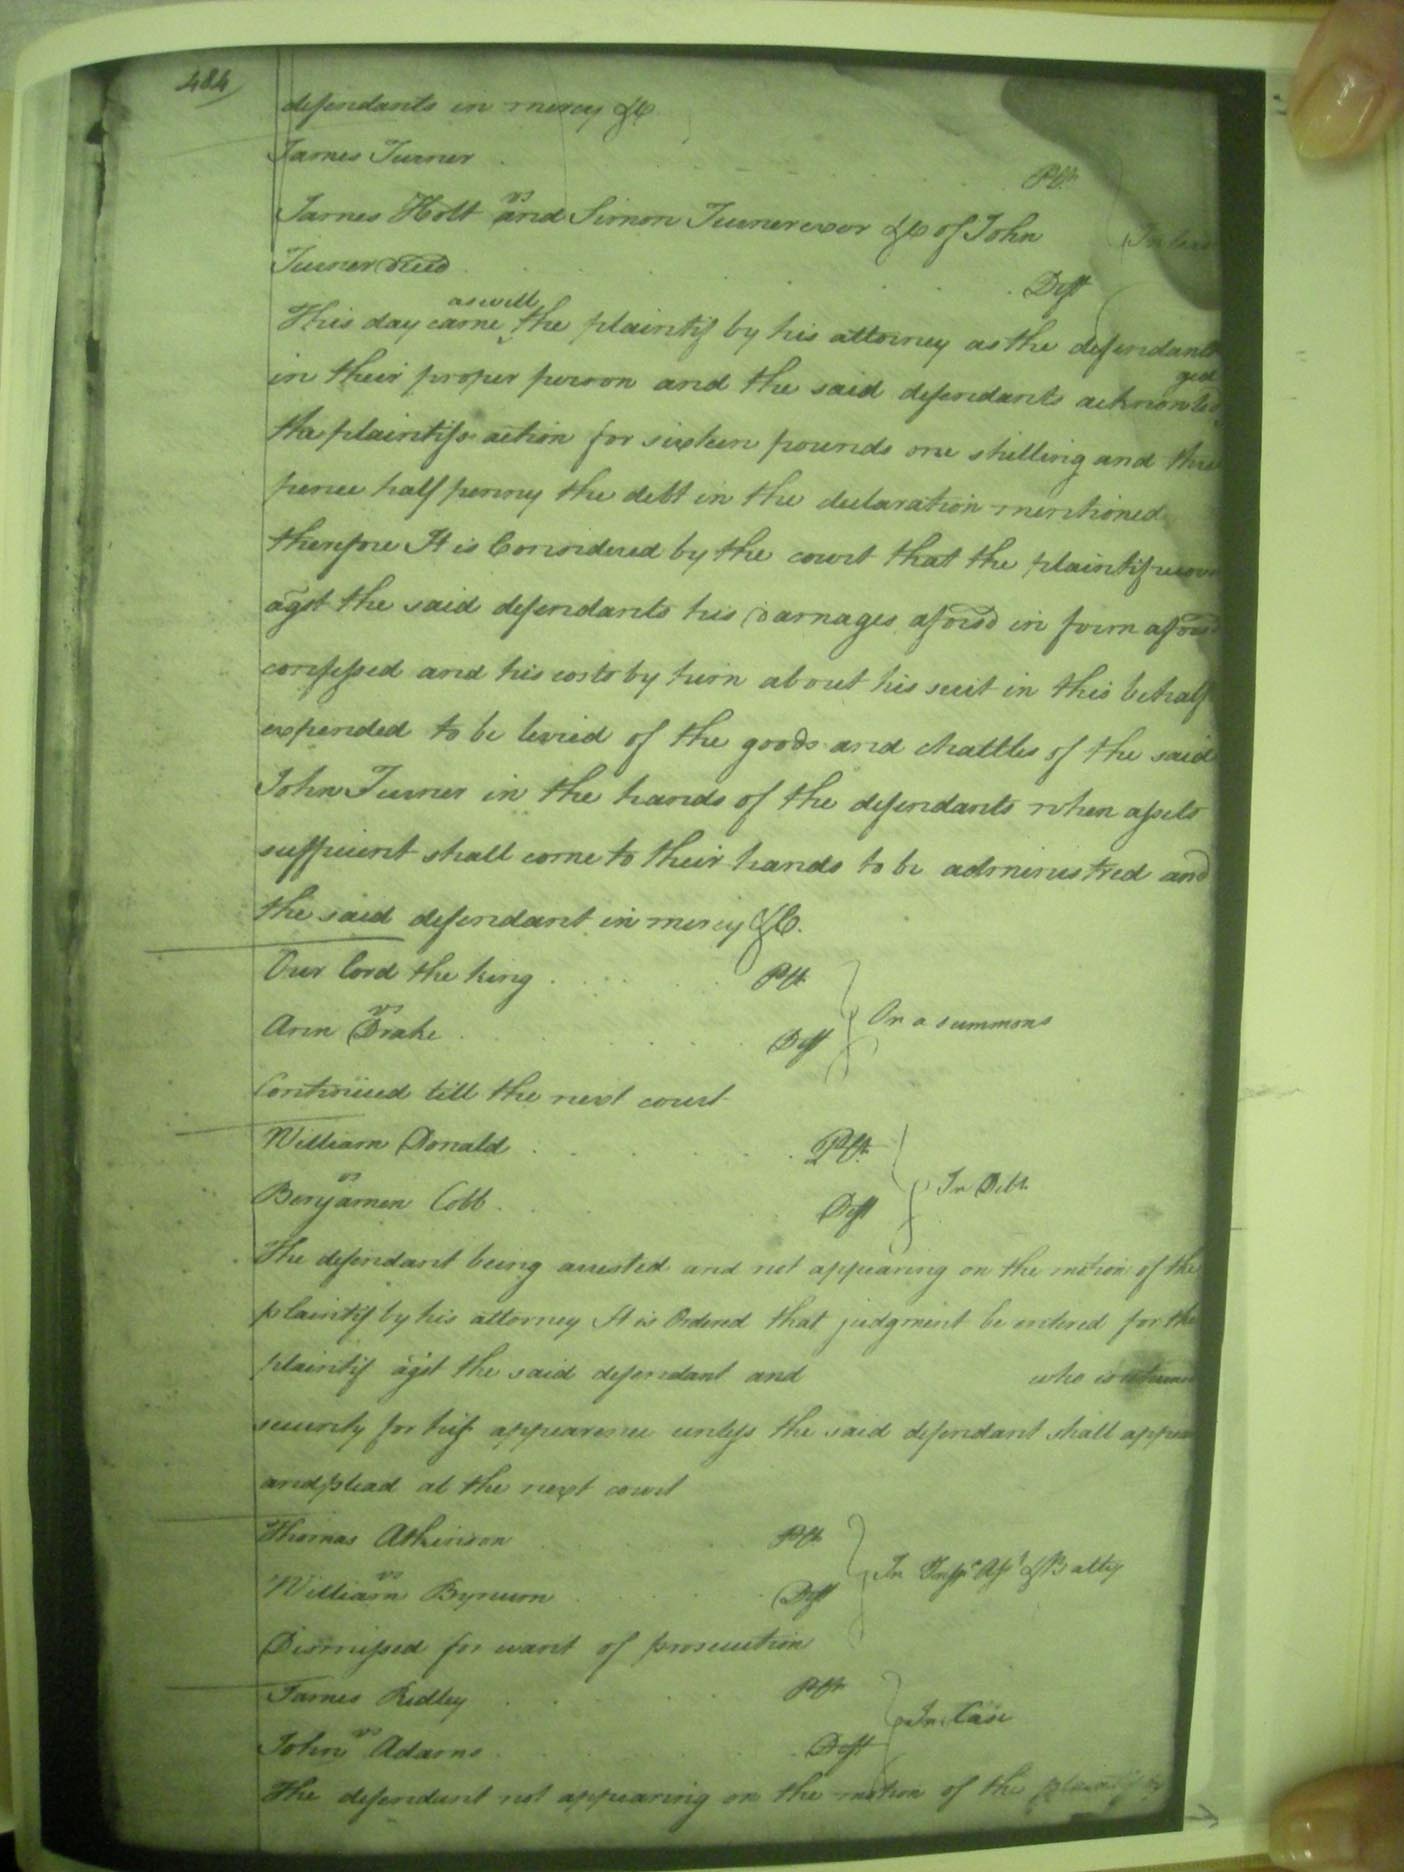 484
defendants in mercy &c
James Turner Plt
vs
James Holt and Simon Turner exor &c of John In
Turner decd Deft
This day came aswell the plaintif by his attorney as the defendants
in their proper person and the said defendants acknowledged
the plaintifs action for sixteen pounds one shilling and three
pence half penny the debt in the declaration mentioned
therefore It is Considered by the court that the plaintif recover
agst the said defendants his damages aforsd in form aforsd
confessed and his costs by him about his suit in this behalf
expended to be levied of the goods and chattles of the said
John Turner in the hands of the defendants when assets
sufficient shall come to their hands to be administred and
the said defendant in mercy &C.
Our Lord the king Plt
vs On a summons
Ann Drake Deft
Continued till the next court
William Donald Plt
vs In Debt
Benjamen Cobb Deft
The defendant being arrested and not appearing on the motion of the
plaintif by his attorney It is Ordered that judgment be entered for the
plaintif agst the said defendant and who is returned
security for his appearence unless the said defendant shall appear
and plead at the next court
Thomas Atkinson Plt
vs In Tresps Asst & Battry
William Bynum Deft
Dismissed for want of prosecution
James Ridley Plt
vs In Case
John Adams Deft
The defendant not appearing on the motion of the plaintif by